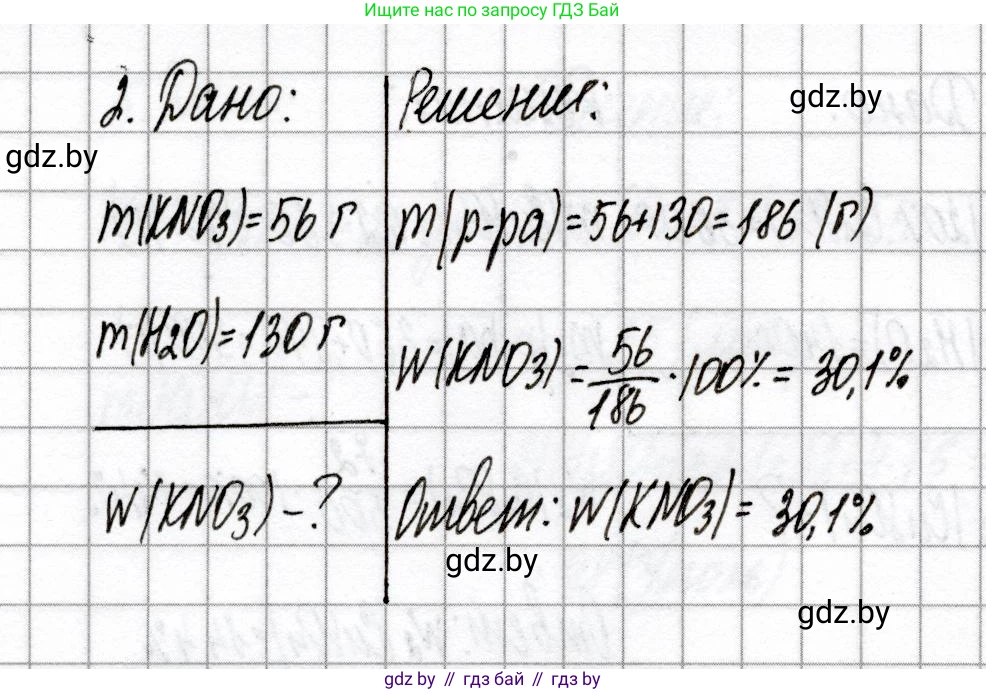 Ищите нас по запросу ГДЗ Бай
2. Дано:
Решение:
gdz.by
gdz.by
m(KNO3)=56 г
m(р-ра)=56+130=186 (г)
m(H2O)=130 г
W(KNO3) = 56/186 · 100% = 30,1%
W(KNO3) – ?
Ответ: W(KNO3)= 30,1%
gdz.by
gdz.by
gdz.by // гдз бай // gdz.by